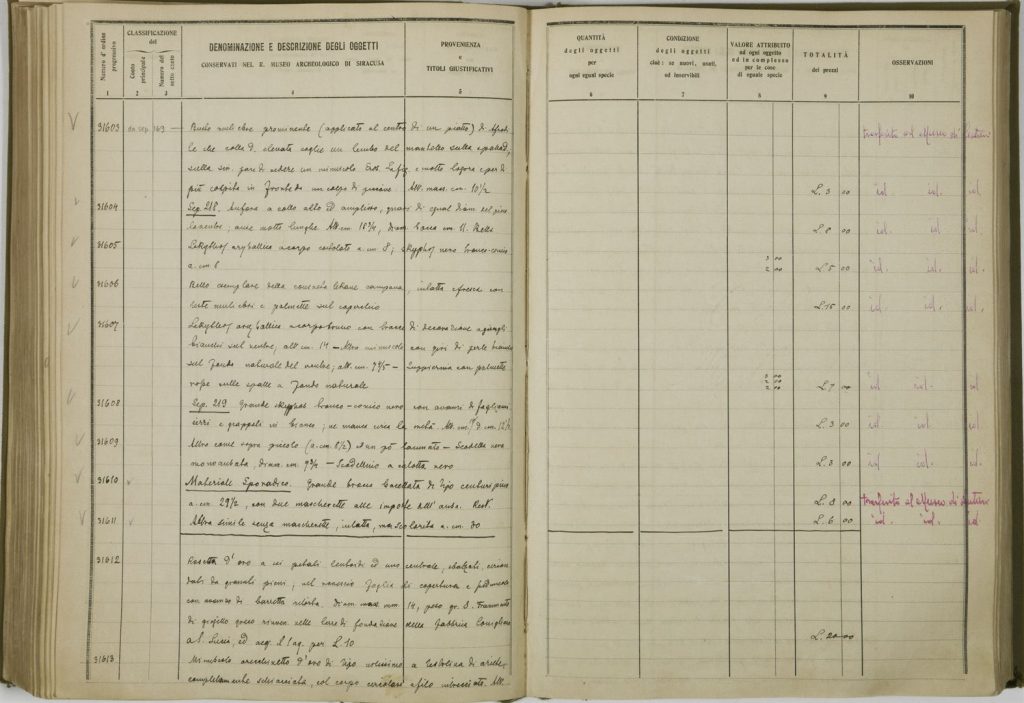 Numero d'ordine progressivo
CLASSIFICAZIONE del
Conto principale
Numero del sotto conto
DENOMINAZIONE E DESCRIZIONE DEGLI OGGETTI
CONSERVATI NEL R. MUSEO ARCHEOLOGICO DI SIRACUSA
PROVENIENZA
e
TITOLI GIUSTIFICATIVI
1 2 3 4 5
31603 da sep. 163 — Busto muliebre prominente (applicato al centro di un piatto) di Afrodi
te che colla d. elevata coglie un lembo del mantello sulla spalla d,
sulla sin. pare di vedere un minuscolo Eros. La fig. è molto logora e per di
più colpita in fronte da un colpo di piccone. Alt. mass. cm. 10 1/2
31604 Sep. 218. Anfora a collo alto ed
ventre; anse molto lunghe. Alt. cm.
31605 Lekythos aryballica a corpo costolato a. cm 8; skyphos nero tronco-conico
a. cm. 8
31606 Bello esemplare della consueta lekane campana, intatta e fresca con
teste muliebri e palmette sul coperchio
31607 Lekythos aryballica a corpo bruno con tracce di decorazione a
bianchi sul ventre, alt. cm. 14 — Altra minuscola con giri di perle bianche
sul fondo naturale del ventre; alt. cm. — con palmette
rosse sulle spalle a fondo naturale
31608 Sep. 219 Grande skyphos tronco-conico nero con avanzi di
e grappoli in bianco; ne manca circa la metà. Alt. cm.
31609 Altro come sopra piccolo (a. cm. 8 1/2) e un pò lacunato — Scodella nera
monoansata, diam. cm. 9 3/4 — Scodellino a calotta nero
31610 Materiale Sporadico. Grande bruna baccellata di tipo centuripino
a. cm. 29 1/2, con due mascherette alle imposte dell'ansa. Rest.
31611 Altra simile senza mascherette, intatta, ma scolorita a. cm. 30
31612 Rosetta d'oro a sei petali cuoriformi ed uno centrale, sbalzati, circon
dati da granuli pieni; nel rovescio foglia di copertura e peduncolo
con avanzo di barretta ritorta. Diam. mass. mm. 14, peso gr.
di gioiello greco rinven. nelle terre di fondazione della fabbrica
a S. Lucia, ed acq. il per L. 10
31613 Minuscolo orecchinetto d'oro di tipo notissimo a testolina di ariete
completamente schiacciata, col corpo circolare a filo intrecciato.
QUANTITÀ
degli oggetti
per
ogni egual specie
CONDIZIONE
degli oggetti
cioè: se nuovi, usati,
od inservibili
VALORE ATTRIBUITO
ad ogni oggetto
ed in complesso
per le cose
di eguale specie
TOTALITÀ
dei prezzi
OSSERVAZIONI
6 7 8 9 10
trasferito al Museo di Lentini
L. 3 00 id. id. id.
L. 8 00 id. id. id.
3 00
2 00 L. 5 00 id. id. id.
L. 15 00 id. id. id.
3 00
2 00
2 00 L. 7 00 id id. id
L. 3 00 id. id. id.
L. 3 00 id id. id.
L. 8 00 trasferito al Museo di Lentini
L. 6 00 id. id. id
L. 20 00